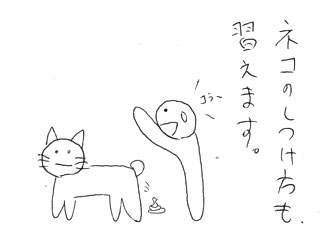 ネコのしつけ方も、
習えます。
コラー